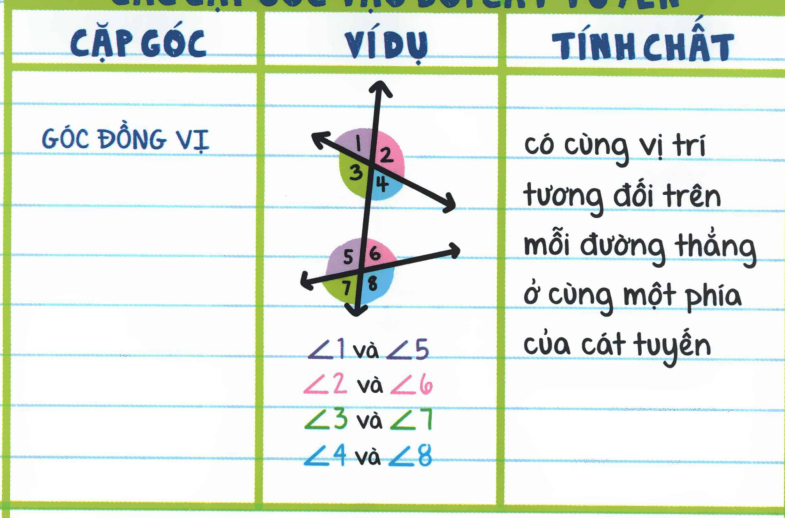 CẶP GÓC
VÍ DỤ
TÍNH CHẤT
GÓC ĐỒNG VỊ
1
2
3
4
5
6
7
8
∠1 và ∠5
∠2 và ∠6
∠3 và ∠7
∠4 và ∠8
có cùng vị trí
tương đối trên
mỗi đường thẳng
ở cùng một phía
của cát tuyến